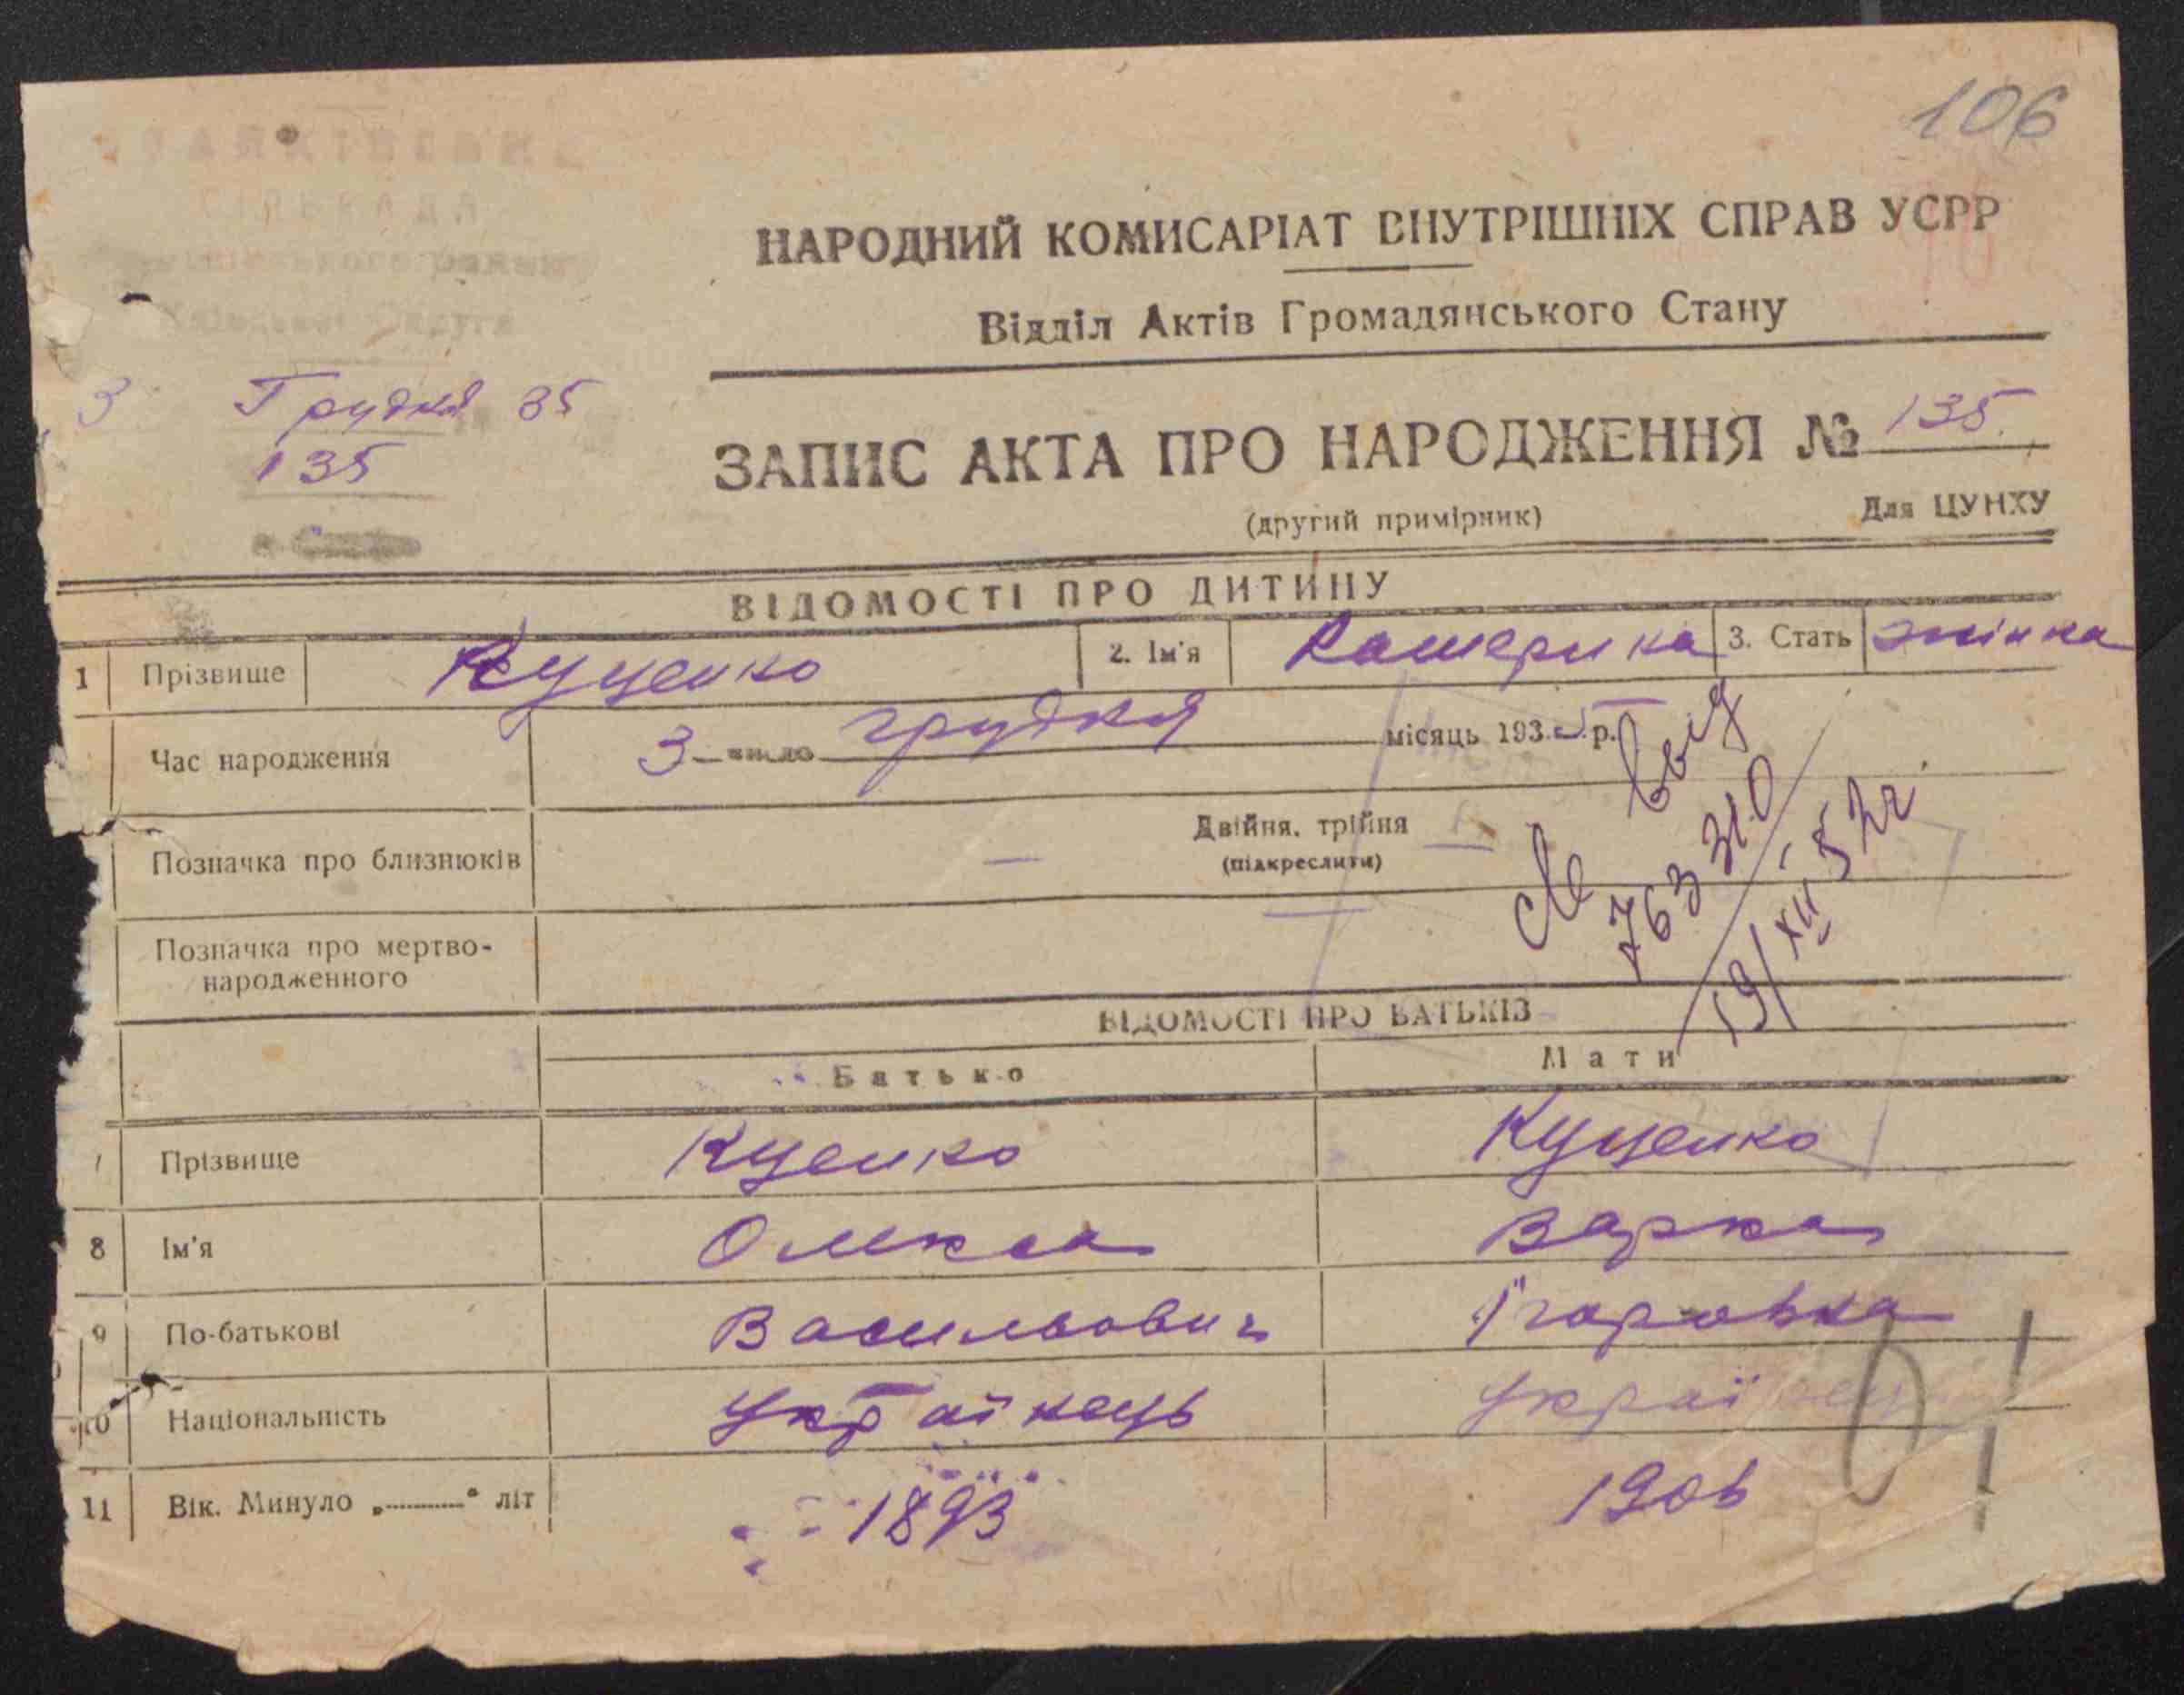 106
СІЛЬРАДА
НАРОДНИЙ КОМИСАРІАТ ВНУТРІШНІХ СПРАВ УСРР
Відділ Актів Громадянського Стану
3 Грудня 35
135
ЗАПИС АКТА ПРО НАРОДЖЕННЯ № 135
(другий примірник) Для ЦУНХУ
ВІДОМОСТІ ПРО ДИТИНУ
1 Прізвище Куценко 2. Ім'я Катерина 3. Стать жінка
Час народження 3 число грудня місяць 1935 р.
Позначка про близнюків — Двійня, трійня
(підкреслити)
Позначка про мертво-
народженного
св выд
763310
19/XII 52г.
ВІДОМОСТІ ПРО БАТЬКІВ
Батько Мати
Прізвище Куенко Куценко
8 Ім'я Олекса Варка
9 По-батькові Васильович Ігоровна
10 Національність Українець Україн
11 Вік. Минуло „ “ літ 1893 1906